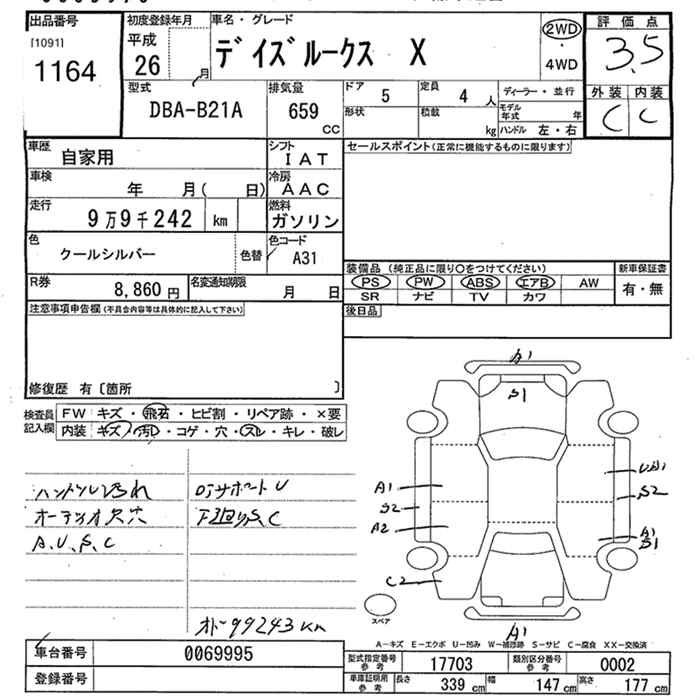 出品番号 初度登録年月 車名・グレード 評価点
[1091] 平成 デイズルークス X 2WD・4WD 3.5
1164 26 月
型式 排気量 ドア 5 定員 4人 ディーラー・並行 外装 内装
DBA-B21A 659 cc 形状 積載 kg モデル年式 年 C C
ハンドル 左・右
車歴 自家用 シフト IAT セールスポイント(正常に機能するものに限ります)
車検 年 月( 日) 冷房 AAC
走行 9万9千242 km 燃料 ガソリン
色 クールシルバー 色替 色コード A31
装備品 (純正品に限り○をつけてください) 新車保証書
R券 8,860円 名変通知期限 月 日 PS PW ABS エアB AW 有・無
SR ナビ TV カワ
注意事項申告欄(不具合内容等は具体的に記入して下さい) 後日品
修復歴 有〔箇所 〕
検査員記入欄 FW キズ・飛石・ヒビ割・リペア跡・×要
内装 キズ・汚れ・コゲ・穴・スレ・キレ・破レ
A1
S1
ハンドル汚れ
オーディオ欠穴 下廻りS、C
A、U、S、C
A1 UA1
S2 S2
A2 A1
S1
C2
スペア
オドー99243km
A1
A-キズ E-エクボ U-凹み W-補修跡 S-サビ C-腐食 XX-交換済
車台番号 0069995 型式指定番号参考 17703 類別区分番号参考 0002
登録番号 車庫証明用参考 長さ 339cm 幅 147cm 高さ 177cm